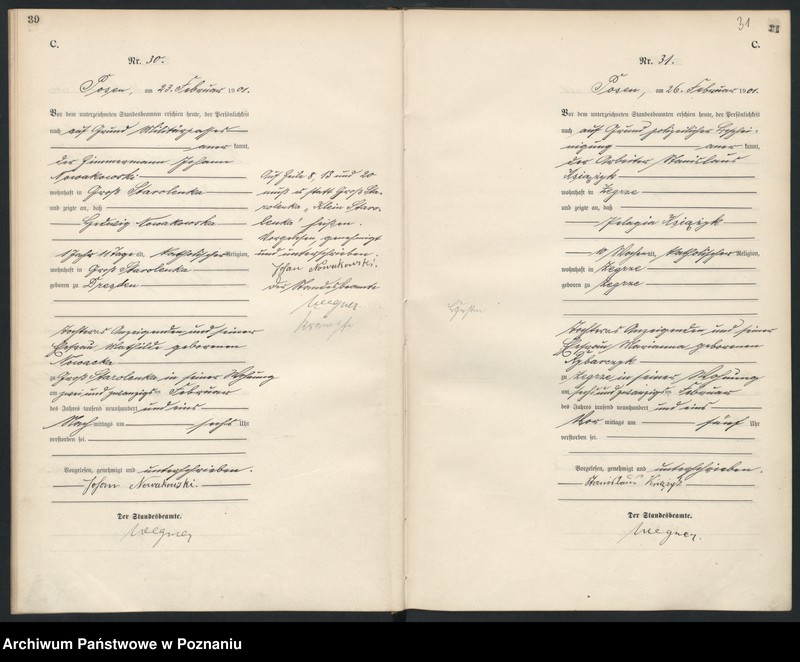 30
C.
Nr. 30.
Posen, am 23. Februar 1901.
Vor dem unterzeichneten Standesbeamten erschien heute, der Persönlichkeit
nach auf Grund Militärpasses
aner kannt,
der Zimmermann Johann
Nowakowski
wohnhaft in Groß Starolenka
und zeigte an, daß
Hedwig Nowakowska
1 Jahr 11 Tage alt, katholischer Religion,
wohnhaft in Groß Starolenka
geboren zu Dresden
Tochter des Anzeigenden und seiner
Ehefrau Mathilde geborenen
Nowacka
zu Groß Starolenka in seiner Wohnung
am zwei und zwanzigsten Februar
des Jahres tausend neunhundert und eins
Nach mittags um sechs Uhr
verstorben sei.
Vorgelesen, genehmigt und unterschrieben.
Johan Nowakowski.
Der Standesbeamte.
Wegner
Auf Zeile 8, 13 und 20
muß es statt Groß Sta-
rolenka „Klein Staro-
lenka" heißen.
Vorgelesen, genehmigt
und unterschrieben.
Johan Nowakowski.
Der Standesbeamte
Wegner
31
31
C.
Nr. 31.
Posen, am 26. Februar 1901.
Vor dem unterzeichneten Standesbeamten erschien heute, der Persönlichkeit
nach auf Grund polizeilicher Beschei-
nigung aner kannt,
der Arbeiter Stanislaus
Książyk
wohnhaft in Zegrze
und zeigte an, daß
Pelagia Książyk
Wochen alt, katholischer Religion,
wohnhaft in Zegrze
geboren zu Zegrze
Tochter des Anzeigenden und seiner
Ehefrau Marianna geborenen
Rybarczyk
zu Zegrze in seiner Wohnung
am sechs und zwanzigsten Februar
des Jahres tausend neunhundert und eins
Vor mittags um fünf Uhr
verstorben sei.
Vorgelesen, genehmigt und unterschrieben.
Stanislaus
Der Standesbeamte.
Wegner.
Archiwum Państwowe w Poznaniu